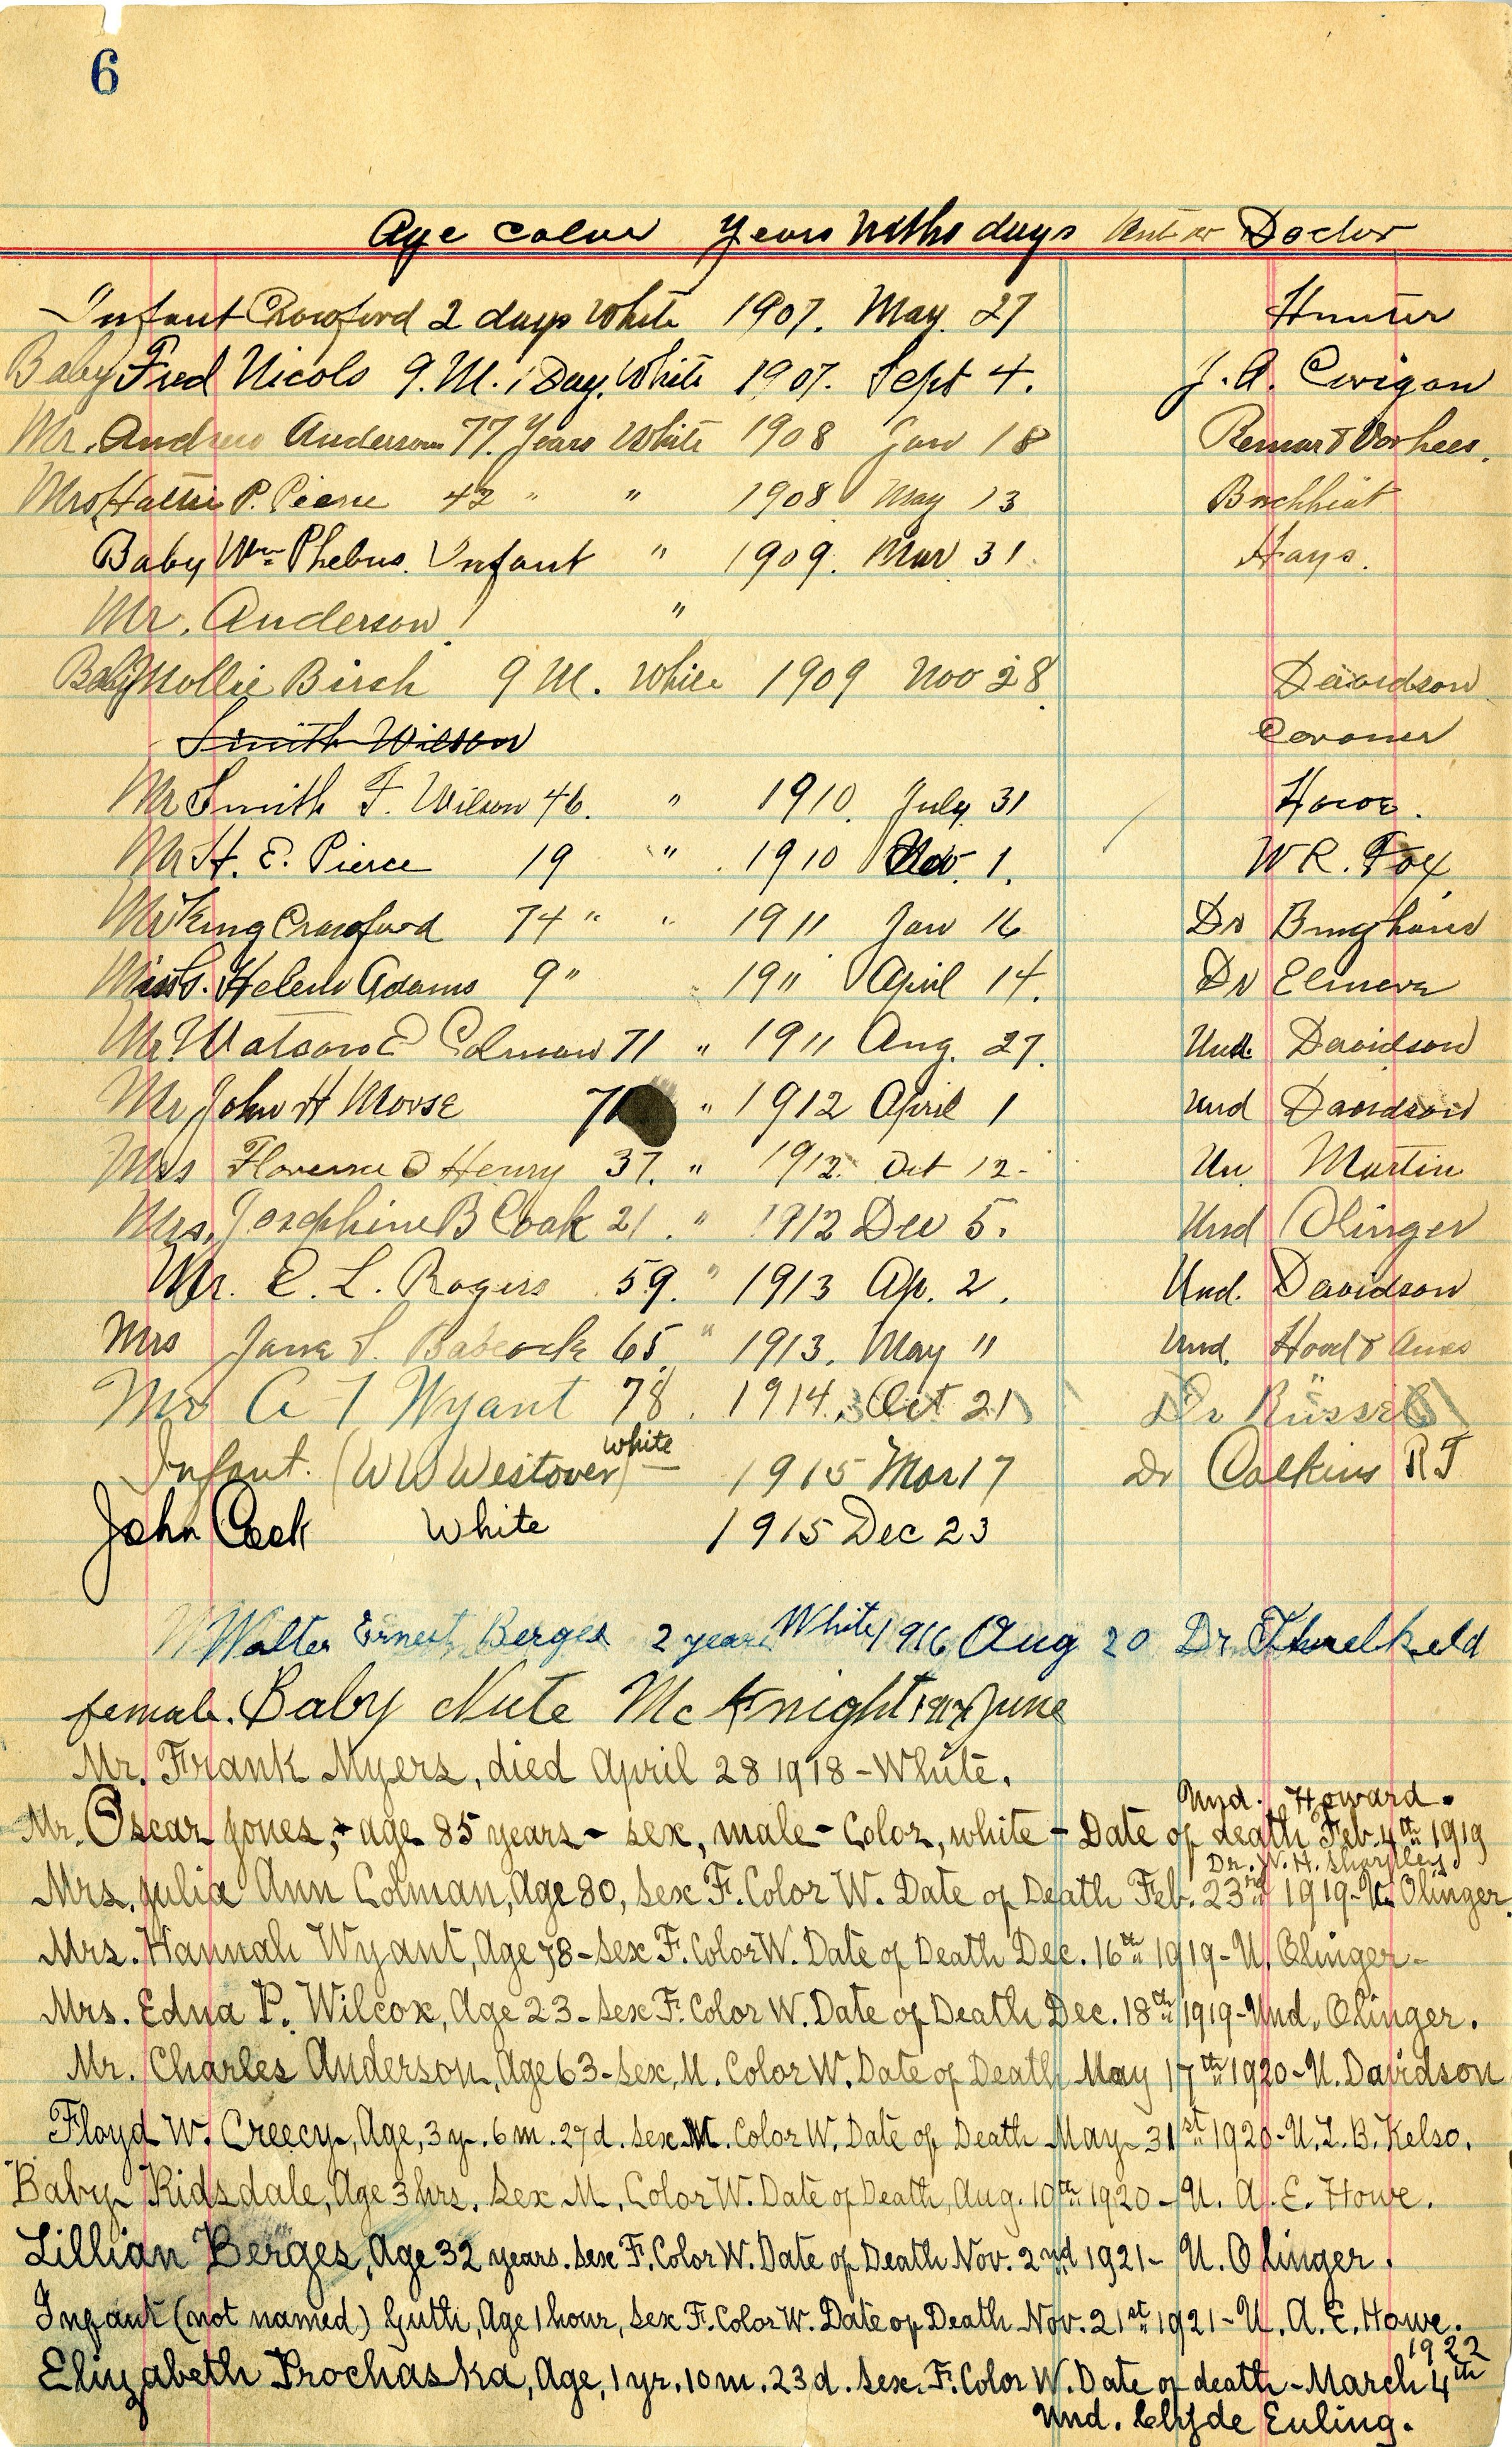 6
Age color Years Mths days or Doctor
Infant Crawford 2 days White 1907. May. 27 Hunter
Baby Fred Nicols 9. M. 1 Day. White 1907. Sept 4. J. A. Corigan
Mr. Andrew Anderson 77. Years White 1908 Jan 18 & Vorhees.
Mrs Hattie P. Pierce 42 " " 1908 May 13
Baby Wm Phebus. Infant " 1909. Mar 31. Hays.
Mr. Anderson "
Baby Mollie Birch 9 M. White 1909 Nov 28. Davidson
Smith Wilson Coroner
Mr Smith F. Wilson 46. " 1910. July 31 Howe.
Mr H. E. Pierce 19 " 1910 Nov. 1. W R. Fox
Mr King Crawford 74 " " 1911 Jan 16 Dr Bingham
Miss S. Helen Adams 9 " 1911 April 14. Dr
Mr Watson E Colman 71 " 1911 Aug. 27. Und. Davidson
Mr John H Morse 71 " 1912 April 1 Und Davidson
Mrs Florence O Henry 37. " 1912. Oct 12. Un. Martin
Mrs. Josephine B Cook 21. " 1912 Dec 5. Und Olinger
Mr. E. L. Rogers 59. " 1913 Ap. 2. Und. Davidson
Mrs Jane S. Babcock 65. " 1913. May " Und. Hood &
Mr A T Wyant 78. 1914. Oct 21 Dr Russil
Infant. (W W Westover) White 1915 Mar 17 Dr Calkins R T
John Cook White 1915 Dec 23
Walter Ernest Berges 2 years White 1916 Aug 20 Dr Threlkeld
female. Baby Nute McKnight 1917 June
Mr. Frank Myers, died April 28 1918 - White.
Und. Howard.
Mr. Oscar Jones, - age 85 years - sex, male - Color, white - Date of death Feb. 4th 1919
Dr. W. H. Sharpley
Mrs. Julia Ann Colman, Age 80, Sex F. Color W. Date of Death Feb. 23rd 1919 - U. Olinger.
Mrs. Hannah Wyant, Age 78 - Sex F. Color W. Date of Death Dec. 16th 1919 - U. Olinger -
Mrs. Edna P. Wilcox, Age 23 - Sex F. Color W. Date of Death Dec. 18th 1919 - Und. Olinger.
Mr. Charles Anderson, Age 63 - Sex, M. Color W. Date of Death May 17th 1920 - U. Davidson
Floyd W. Creecy, Age, 3 y. 6 m. 27 d. Sex M. Color W. Date of Death May 31st 1920 - U. L. B. Kelso.
Baby Ridsdale, Age 3 hrs. Sex M. Color W. Date of Death, Aug. 10th 1920 - U. A. E. Howe.
Lillian Berges, Age 32 years. Sex F. Color W. Date of Death Nov. 2nd 1921 - U. Olinger.
Infant (not named) Guth, Age 1 hour, Sex F. Color W. Date of Death Nov. 21st 1921 - U. A. E. Howe.
1922
Elizabeth Prochaska, Age, 1 yr. 10 m. 23 d. Sex. F. Color W. Date of death - March 4th
Und. Clyde Euling.